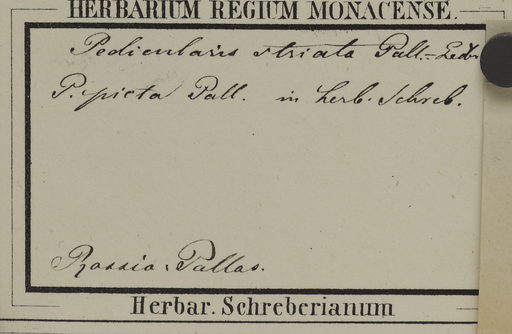 HERBARIUM REGIUM MONACENSE.
Pedicularis striata Pall. = Ledb
P. picta Pall. in herb. Schreb.
Rossia: Pallas.
Herbar. Schreberianum